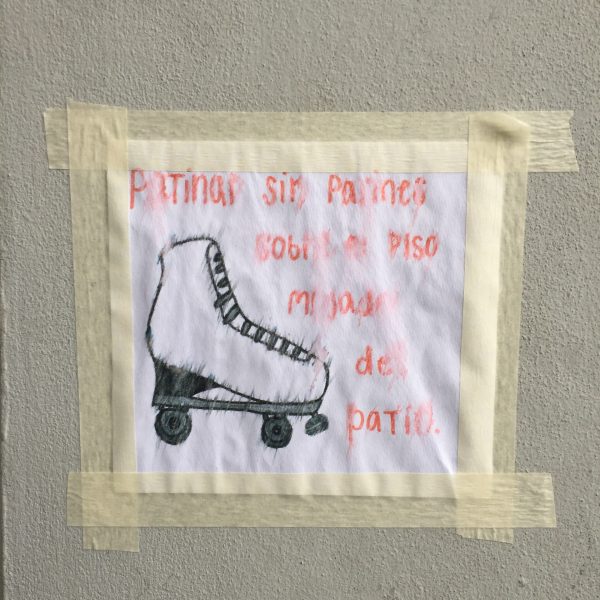 Patinar sin Patines
sobre el piso
mojado
del
patio.